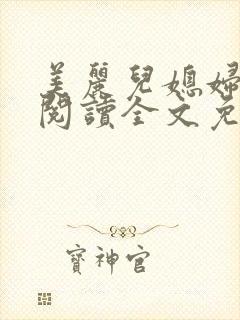 美麗兒媳婦
閱讀全文免
寶神官